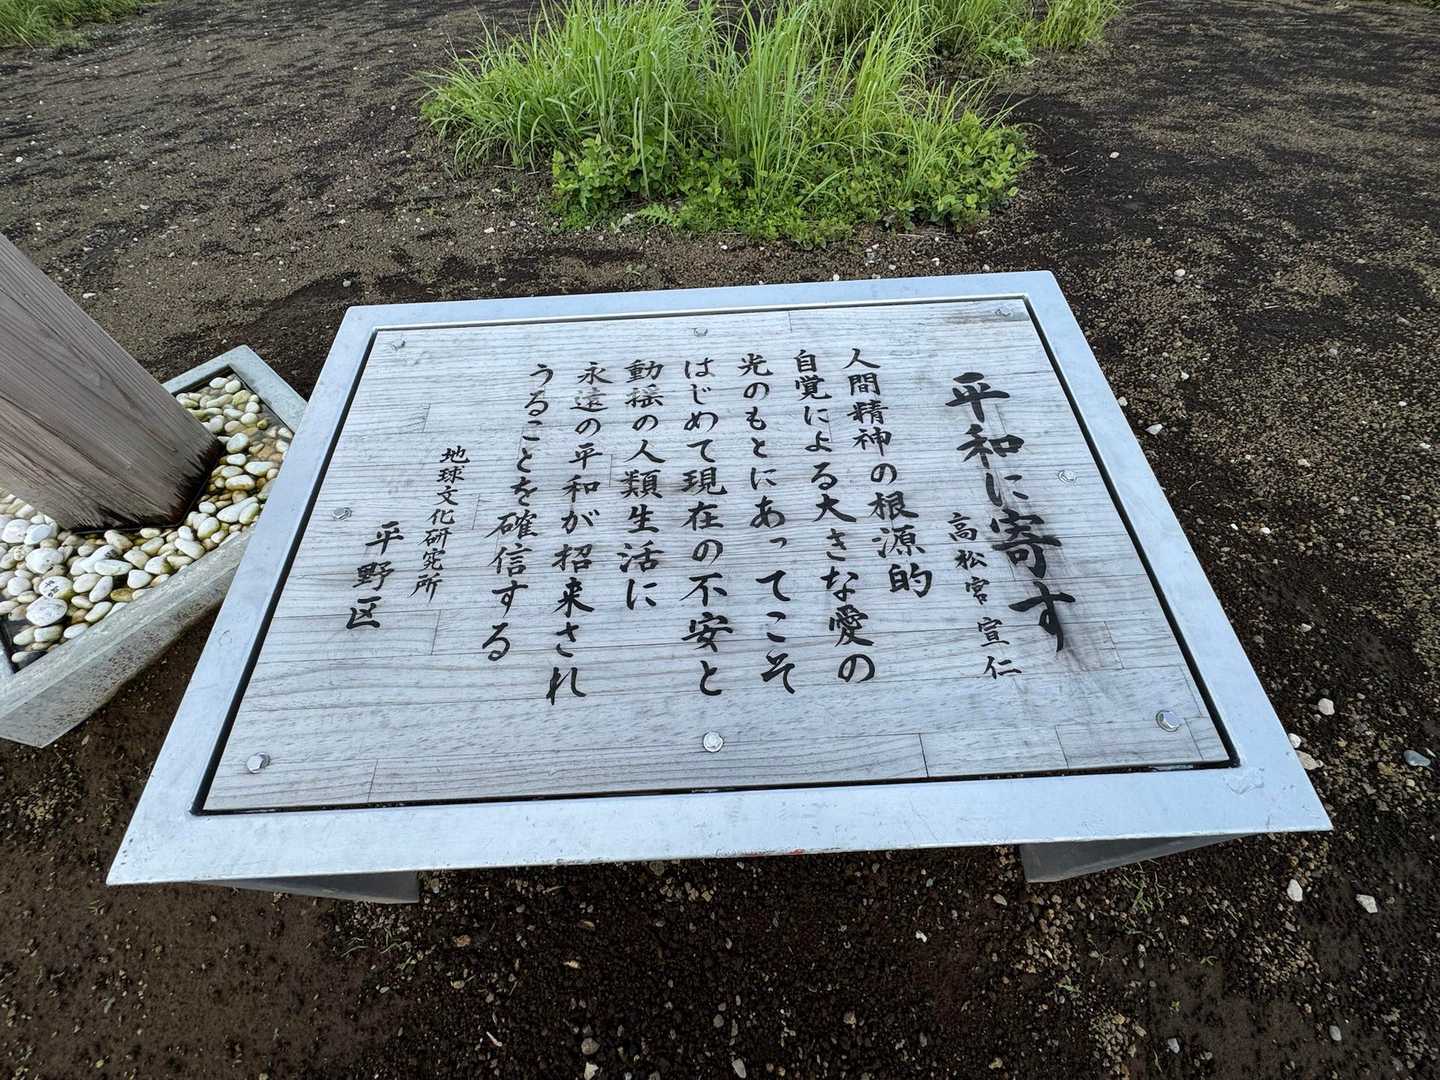 平和に寄す
高松宮 宣仁
人間精神の根源的
自覚による大きな愛の
光のもとにあってこそ
はじめて現在の不安と
動揺の人類生活に
永遠の平和が招来され
うることを確信する
地球文化研究所
平野区